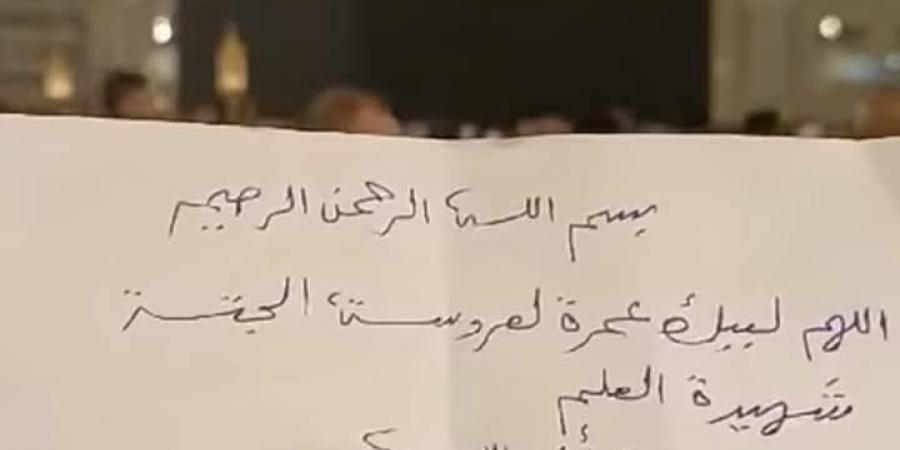 بسم الله الرحمن الرحيم
اللهم لبيك عمرة لعروسة الجنة
شهيدة العلم